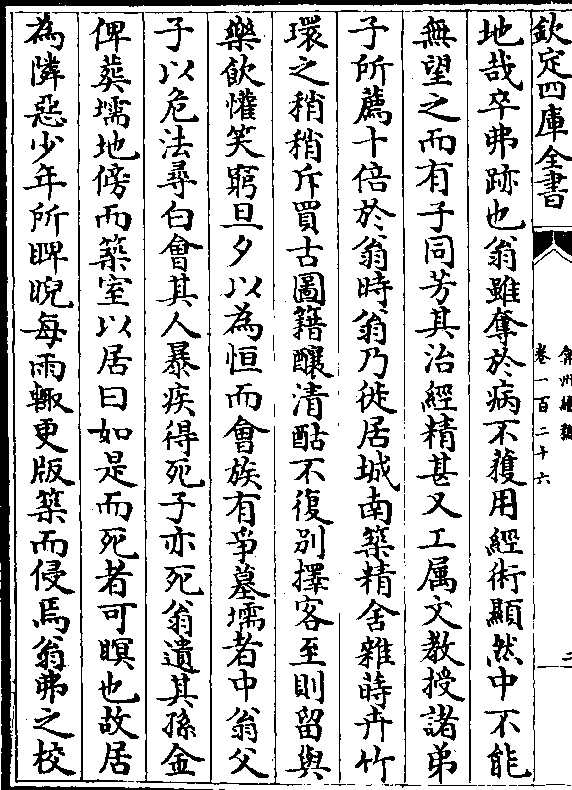 欽定四庫全書
弇州續稿
卷一百二十六
二
地哉卒弗跡也翁雖奪於病不獲用經術顯然中不能
無望之而有子同芳其治經精甚又工属文教授諸弟
子所薦十倍於翁時翁乃徙居城南築精舍雜蒔卉竹
環之稍稍斥買古圖籍釀清酤不復別擇客至則留與
樂飲懽笑窮旦夕以為恒而會族有爭墓壖者中翁父
子以危法尋白會其人暴疾得死子亦死翁遺其孫金
俾葬壖地傍而築室以居曰如是而死者可瞑也故居
為隣惡少年所睥睨每雨輙更版築而侵焉翁弗之校